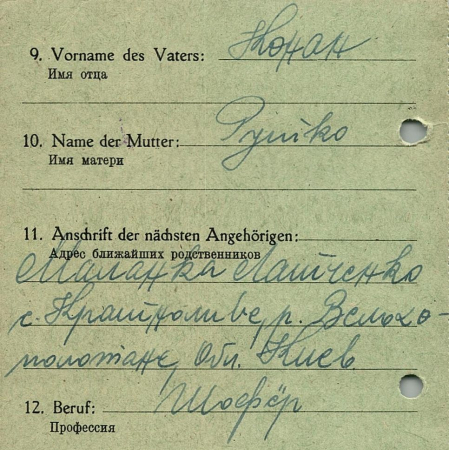 9. Vorname des Vaters: Конан
Имя отца
10. Name der Mutter: Рупко
Имя матери
11. Anschrift der nächsten Angehörigen:
Адрес ближайших родственников
Маланка
с. р.
обл. Киев
12. Beruf: Шофёр
Профессия